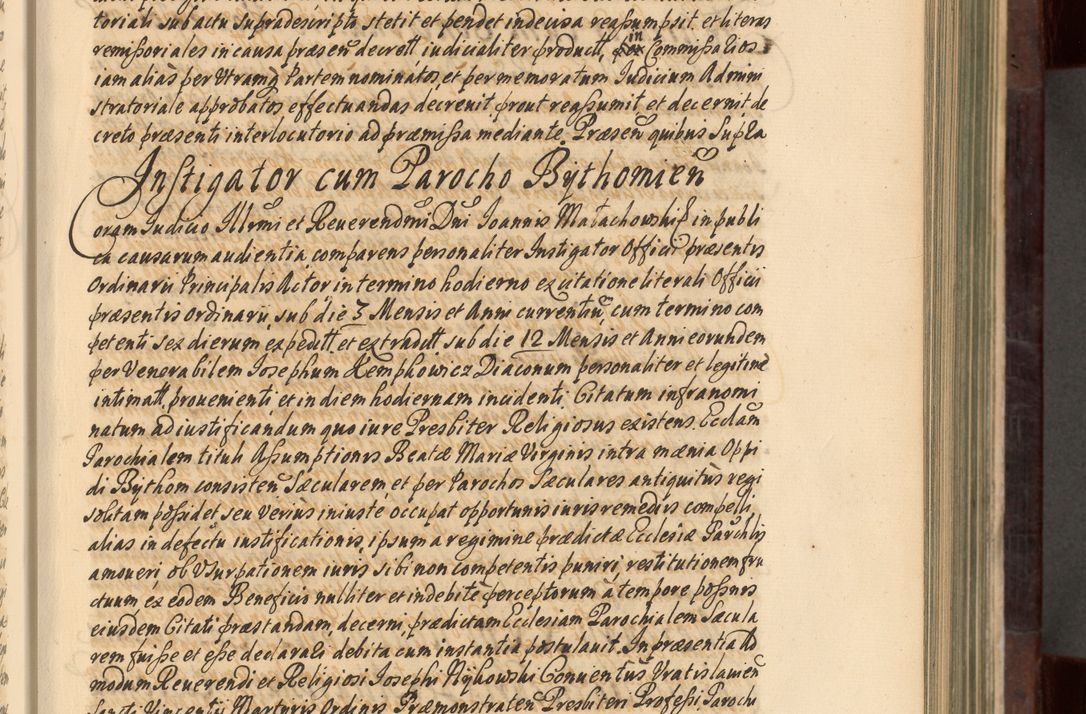 toriali sub actu supradescripto stetit et pendet indecisa reassumpsit et literas
remissoriales in causa præsen decrett iudicialiter productt, in Commissarios
iam alias per Utramq Partem nominatos, et per memoratum Iudicium Admini
stratoriale approbatos effectuandas decreuit prout reassumit et decernit de
creto præsenti interlocutorio ad præmissa mediante. Præsen quibus Supra
Instigator cum Parocho Bythomien
Coram Iudicio Illrmi et Reuerendmi Dni Ioannis Małachowski in publi
ca causarum audientia comparens personaliter Instigator Officii præsentis
Ordinarii Principalis Actor in termino hodierno ex citatione literali Officii
præsentis Ordinarii, sub die 3 Mensis et Anni currentiu, cum termino com
petenti sex dierum expeditt, et extraditt sub die 12 Mensis et Anni eorundem
per Venerabilem Iosephum Kempkowicz Diaconum personaliter et legitime
intimatt, prouenienti et in diem hodiernam incidenti. Citatum infranomi
natum ad iustificandum quo iure Presbiter Religiosus existens Ecclam
Parochialem tituli Assumptionis Beatæ Mariæ Virginis intra mænia Oppi
di Bythom consisten Sæcularem et per Parochos Sæculares antiquitus regi
solitam possidet seu verius iniuste occupat opportunis iuris remediis compelli
alias in defectu iustificationis, ipsum a regimine prædictæ Ecclesiæ Parchlis
amoueri ob Vsurpationem iuris sibi non competentis puniri, restitutionem fru
ctuum ex eodem Beneficio nulliter et indebite perceptorum a tempore possnis
eiusdem Citati præstandam, decerni, prædictam Ecclesiam Parochialem Sæcula
rem fuisse et esse declarari debita cum instantia postulauit. In præsentia Ad
modum Reuerendi et Religiosi Iosephi Conuentus Vratislauien
Sancti Vincentii Martyris Ordinis Præmonstraten Presbiteri Professi, Parochi